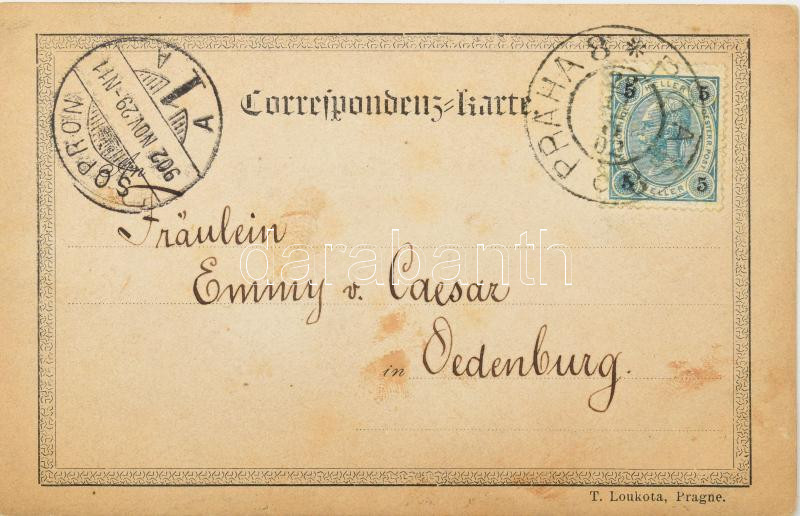 SOPRON
902 NOV. 29 - N 11
A 1 A
Correspondenz-Karte
PRAHA 8 ✻ PRAG 8
5 HELLER 5
5 HELLER 5
Fräulein
Emmy v. Caesar
in Oedenburg.
darabanth
T. Loukota, Prague.